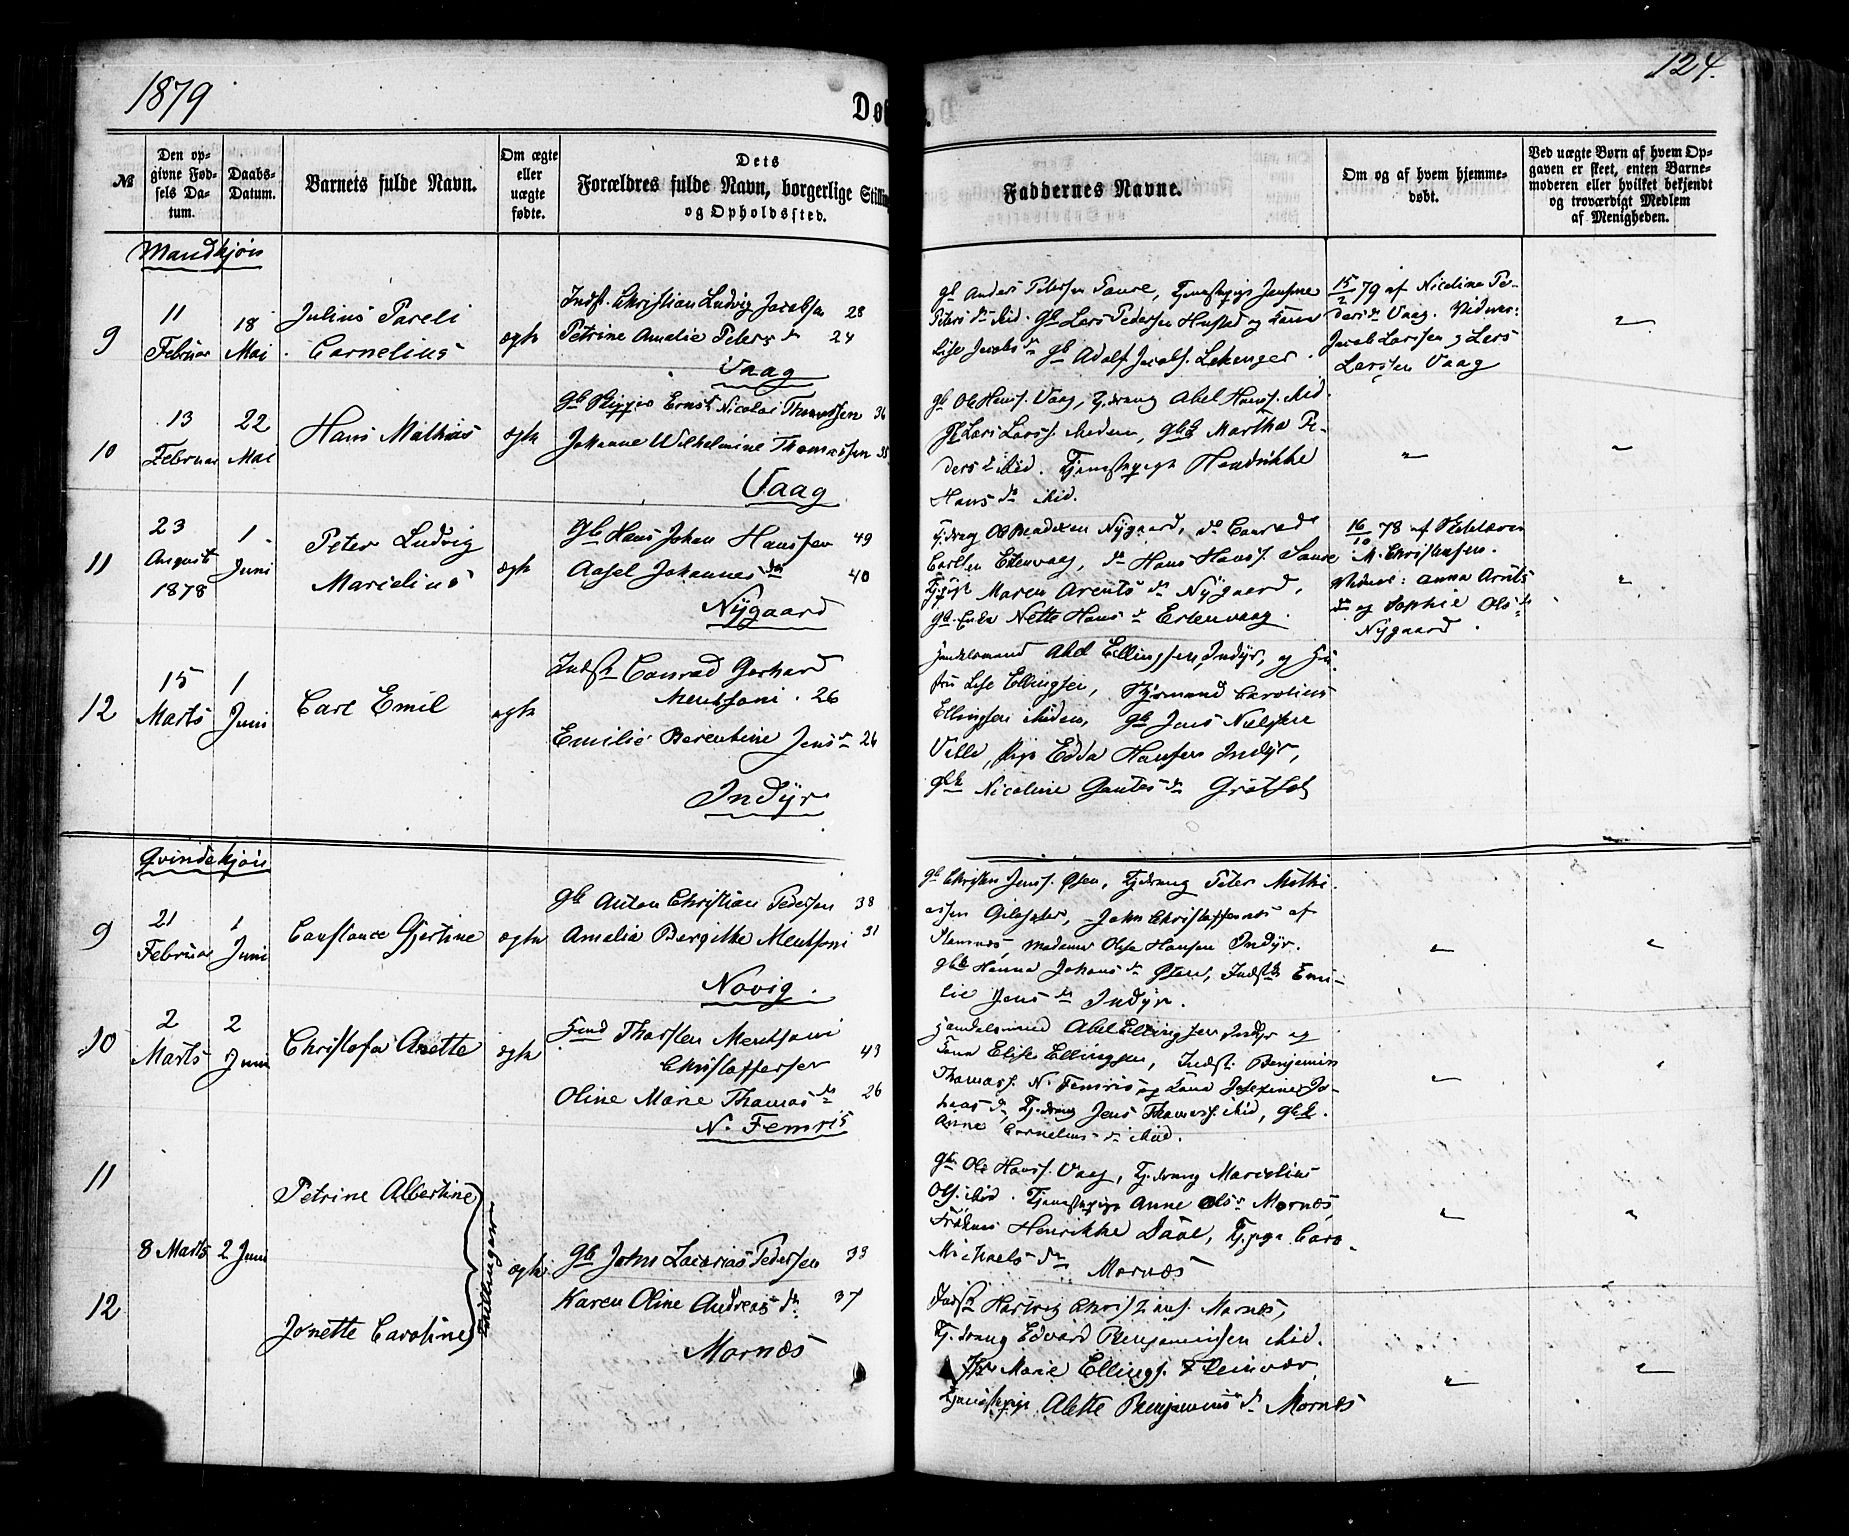 1879
124.
Døb
Den op-
givne Fød-
sels Da-
tum.
№
Daabs-
Datum.
Barnets fulde Navn.
Om ægte
eller
uægte
fødte.
Dets
Forældres fulde Navn, borgerlige Stilling
og Opholdssted.
Faddernes Navne.
Om og af hvem hjemme-
døbt.
Ved uægte Børn af hvem Op-
gaven er skeet, enten Barne-
moderen eller hvilket bekjendt
og troværdigt Medlem
af Menigheden.
Mandkjøn
9
11
Februar
18
Mai
Julius Pareli
Cornelius
ægte
Indst. Christian Ludvig Jacobsen 28
Petrine Amalie Petersdr 24
Vaag
Gb Anders Petersen Saure, Tjenestepige
Petersdr ibid. Gb Lars Pedersen Hustad og Kone
Lise Jacobsdr Gb Adolf Jacobs. Lekenger.
15/2 79 af Nicoline Pe-
dersdr Vaag. Vidner:
Jacob Larssen og Lars
Larssen Vaag
"
10
13
Februar
22
Mai
Hans Mathias
ægte
Ernst Nicolai Thomassen 36
Johanne Wilhelmine Thomassen 35
Vaag
Gb Ole Hanss. Vaag, Tj.dreng Abel Hanss. ibid.
Lars Larss. Meden, Gbk Martha Pe-
dersdr ibid. Tjenestepige Hendrikke
Hansdr ibid.
"
"
11
23
August
1878
1
Juni
Peter Ludvig
Marcelius
ægte
Gb Hans Johan Hanssen 49
Aasel Johannesdtr 40
Nygaard
Tj.dreng Ole Nygaard, do Conrad
Carlsen Estenvaag, do Hans Hanss. Saure
Maren Arentsdr Nygaard,
Gb. Enke Nette Hansdr Estenvaag.
16/10 78 af Kirkesanger
M. Christensen.
Vidner: Anna Arnts
dr og Sophie Olsdr
Nygaard.
"
12
15
Marts
1
Juni
Carl Emil
ægte
Indst Conrad Gerhard
Mentsoni. 26
Emilie Berentine Jensdr 26
Indyr
Handelsmand Abel Ellingsen, Indyr, og Hu-
stru Lise Ellingsen, Carolius
Ellingsen Meden, Gb Jens Nielsen
Edda Hansen Indyr,
Gbk Nicoline Gautesdr
Qvindekjøn
9
21
Februar
1
Juni
Constance Gjertine
ægte
Gb Anton Christian Pedersen 38
Amalia Bergitte Mentsoni 31
Novig.
Gb Christen Jens. Øsen, Tj.dreng Peter Mathi-
assen Gilesater, John Christoffersøns af
Stamnæs, Madame Olise Hansen Indyr.
Gbk Hanna Johansdr Øsen, Indstk Emi-
lie Jensdr Indyr.
"
"
10
2
Marts
2
Juni
Christofa Anette
ægte
Thorsten Mentsoni
Christoffersen 43
Oline Marie Thomasdr 26
N. Femris
Handelsmand Abel Ellingsen Indyr og
Kone Elise Ellingsen, Indst. Benjamin
Thomass. N. Femris og Kone Josefine Jo-
hansdr, Tj.dreng Jens Thomass. ibid, Gbk.
Anne Corneliusdr ibid.
"
11
Petrine Albertine
8 Marts
2 Juni
Tvillinger
ægte
Gb John Zacarias Pedersen 33
Karen Oline Andreasdtr. 37
Mornæs
Gb Ole Hanss. Vaag, Tj.dreng Marcelius
Ols. ibid. Tjenestepige Anne Olsdr Mornæs
Frøken Henrikke Daae, Tj.pige Caro-
Michaelsdr
Mornæs
"
"
12
Jonette Caroline
Indst Hartvig Christians. Mornæs,
Tj.dreng Edvard Benjaminsen ibid.
Marie Ellings. Fleinvær
Tjenestepige Alette Benjaminsdr Mornæs
"
"